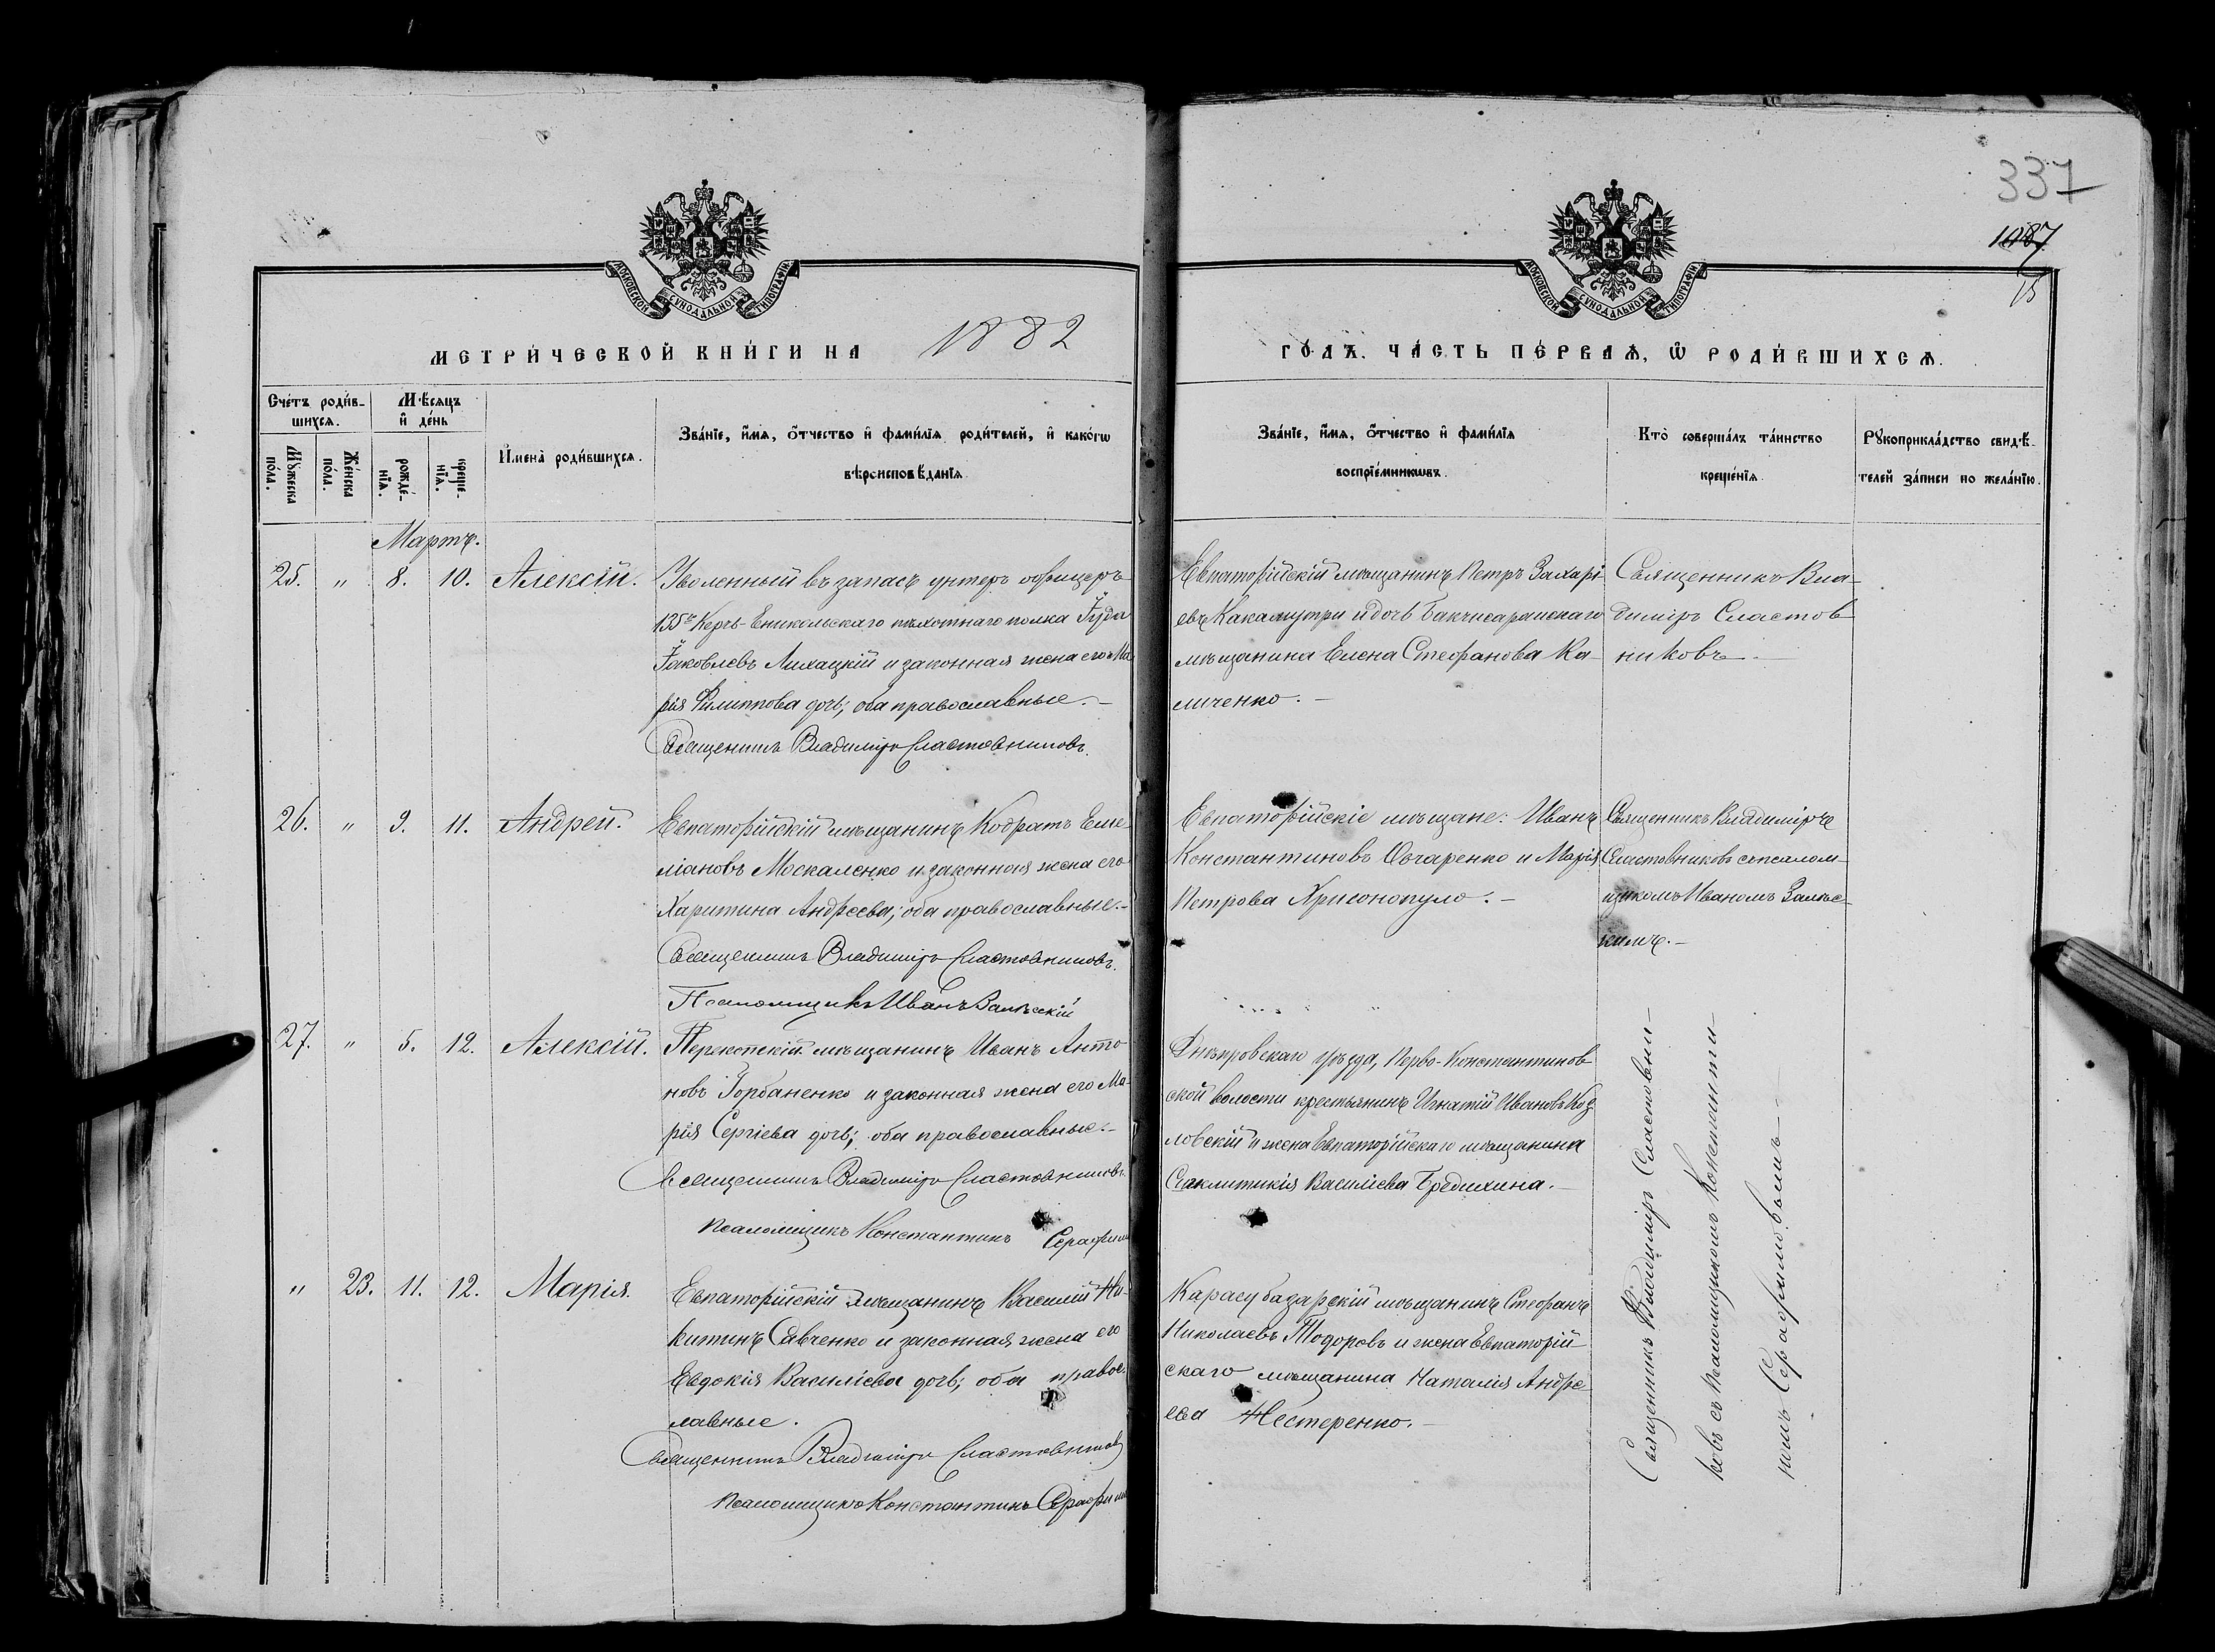 337
1087
15
МОСКОВСКОЙ СѴНОДАЛЬНОЙ ТИПОГРАФІИ
МОСКОВСКОЙ СѴНОДАЛЬНОЙ ТИПОГРАФІИ
МЕТРИ́ЧЕСКОЙ КНИ́ГИ НА 1882
ГО́ДЪ. ЧА́СТЬ ПЕ́РВАѦ, Ѡ РОДИ́ВШИХСѦ.
Сче́тъ роди́в-
шихсѧ.
Мꙋ́жеска по́ла.
Же́нска по́ла.
Мѣ́сяцъ
и҆ де́нь
рожде́-
нїѧ.
креще́-
нїѧ.
И҆мена̀ роди́вшихсѧ.
Зва́нїе, и҆́мѧ, ѻ҆́тчество и҆ фами́лїѧ роди́телей, и҆ како́гѡ
вѣроисповѣ́данїѧ.
Зва́нїе, и҆́мѧ, ѻ҆́тчество и҆ фами́лїѧ
воспрїе́мникѡвъ.
Кто̀ соверша́лъ та́инство
креще́нїѧ.
Рꙋкоприкла́дство свидѣ́-
телей за́писи по жела́нїю.
Мартъ.
25. " 8. 10. Алексій.
Уволенный въ запасъ унтеръ офицеръ
135го Керчь-Еникольскаго пѣхотнаго полка Іуда
Іаковлевъ Лихацкій и законная жена его Ма-
рія Филиппова дочь; оба православные.—
Священникъ Владиміръ Сластовниковъ.
Евпаторійскій мѣщанинъ Петръ Захарі-
евъ Какамутри и дочь Бакчисарайскаго
мѣщанина Елена Стефанова Ка-
личенко.—
Священникъ Вла-
диміръ Сластов-
никовъ.—
26. " 9. 11. Андрей.
Евпаторійскій мѣщанинъ Кодратъ Еме-
ліановъ Москаленко и законная жена его
Харитина Андреева; оба православные.—
Священникъ Владиміръ Сластовниковъ.
Псаломщикъ Иванъ Залѣсскій
Евпаторійскіе мѣщане: Иванъ
Константиновъ Овчаренко и Марія
Петрова Хрисонопуло.—
Священникъ Владиміръ
Сластовниковъ съ псалом-
щикомъ Иваномъ Залѣс-
скимъ.—
27. " 5. 12. Алексій.
Перекопскій мѣщанинъ Иванъ Анто-
новъ Горбаненко и законная жена его Ма-
рія Сергіева дочь; оба православные.—
Священникъ Владиміръ Сластовниковъ.
Псаломщикъ Константинъ Серафим
Днѣпровскаго уѣзда, Перво-Константинов-
ской волости крестьянинъ Игнатій Ивановъ Коз-
ловскій и жена Евпаторійскаго мѣщанина
Синклитикія Василіева Бредихина.—
" 23. 11. 12. Марія.
Евпаторійскій мѣщанинъ Василій Ни-
китинъ Савченко и законная жена его
Евдокія Василіева дочь; оба правос-
лавные.
Священникъ Владиміръ Сластовниковъ
Псаломщикъ Константинъ Серафим
Карасубазарскій мѣщанинъ Стефанъ
Николаевъ Тодоровъ и жена Евпаторій-
скаго мѣщанина Наталія Андре-
ева Нестеренко.—
Священникъ Владиміръ Сластовни-
ковъ съ псаломщикомъ Константи-
номъ Серафимовымъ.—